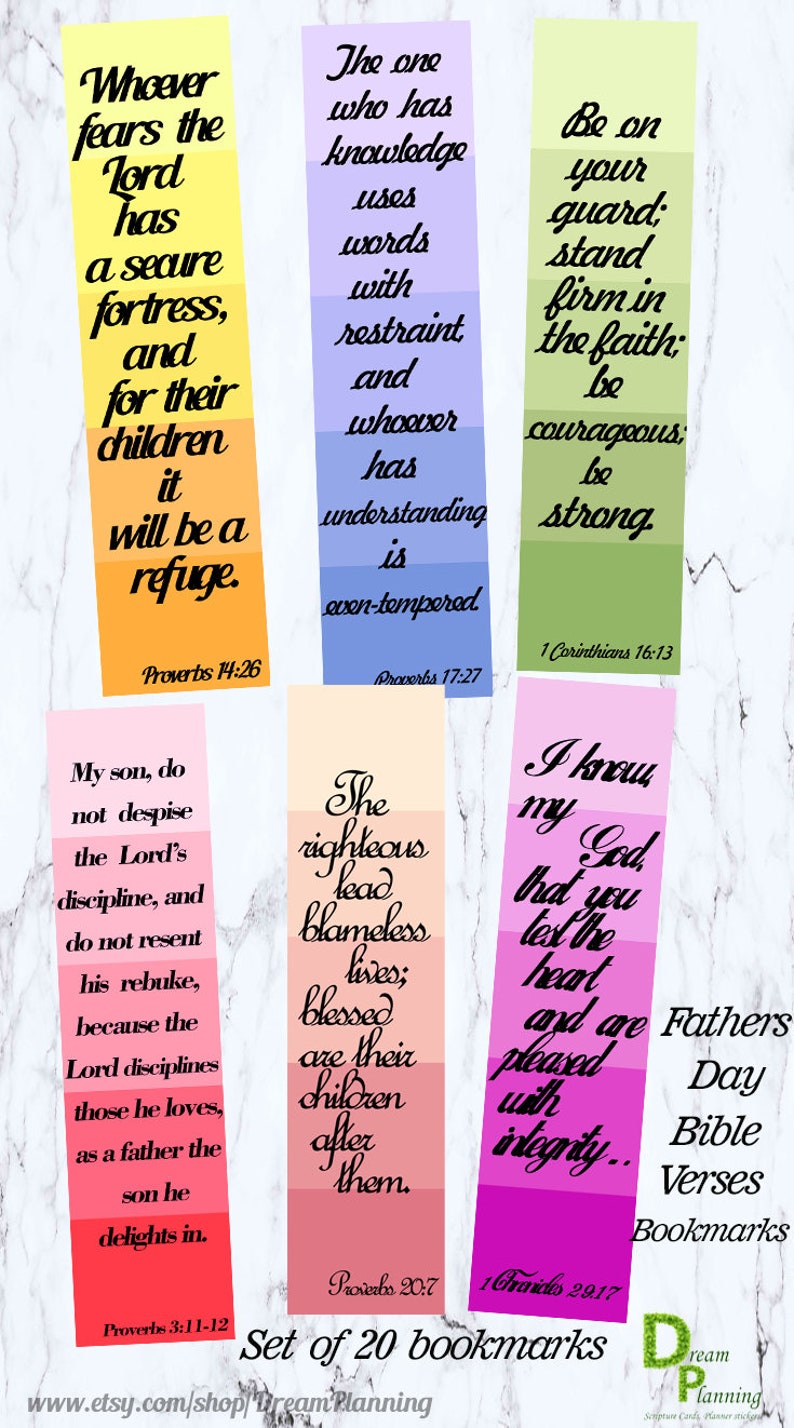 Whoever
fears the
Lord
has
a secure
fortress,
and
for their
children
it
will be a
refuge.
Proverbs 14:26
The one
who has
knowledge
uses
words
with
restraint,
and
whoever
has
understanding
is
even-tempered.
Proverbs 17:27
Be on
your
guard;
stand
firm in
the faith;
be
courageous;
be
strong.
1 Corinthians 16:13
My son, do
not despise
the Lord's
discipline, and
do not resent
his rebuke,
because the
Lord disciplines
those he loves,
as a father the
son he
delights in.
Proverbs 3:11-12
The
righteous
lead
blameless
lives;
blessed
are their
children
after
them.
Proverbs 20:7
I know,
my
God,
that you
test the
heart
and are
pleased
with
integrity..
1 Chronicles 29.17
Fathers
Day
Bible
Verses
Bookmarks
Set of 20 bookmarks
Dream
Planning
Scripture Cards, Planner stickers
www.etsy.com/shop/DreamPlanning